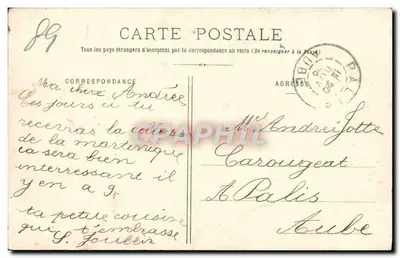 89
CARTE POSTALE
Tous les pays étrangers n'acceptent pas la correspondance au recto (Se renseigner à la poste)
CORRESPONDANCE
ADRESSE
PALIS
AUBE
Ma cher Andrée
Ces jours ci tu
recevras la
de la martinique
ca sera bien
interressant il
y en a 9.
ta petite cousine
qui t'embrasse
S. Joubert
CPAPHIL
Mlle Andrée Jotte
Carougeat
A Palis
Aube